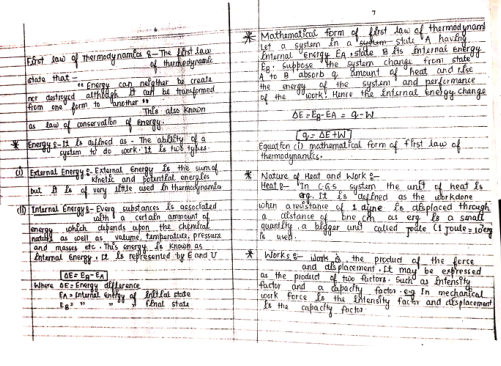 6
First law of Thermodynamics :- The first law
of thermodynamic
state that -
"Energy can neigther be create
nor destroyed although it can be transformed
from one form to another"
This also known
as law of conservation of energy.
* Energy :- It is defined as - The ability of a
system to do work. It is two types.
(i) External Energy :- External energy is the sum of
kinetic and potential energies
but it is of very little used in thermodynamics
(ii) Internal Energy :- Every substances is associated
with a certain amount of
energy which depends upon the chemical
nature as well as volume, temperature, pressure
and masses etc. This energy is known as
Internal energy. It is represented by E and U
ΔE = EB - EA
Where ΔE = Energy difference
EA = Internal energy of initial state
EB = " " " final state
7
* Mathematical form of first law of thermodynami
Let a system in a state A having
internal energy EA & state B its internal energy
EB. Suppose the system change from state
A to B absorb q amount of heat and
the energy of the system and performance
of the work. Hence the internal energy change
ΔE = EB - EA = q - W
q = ΔE + W
Equation (i) mathematical form of first law of
thermodynamics.
* Nature of Heat and Work :-
Heat :- In C.G.S system the unit of heat is
erg. It is defined as the workdone
when a resistance of 1 dyne is displaced through
a distance of one cm as erg is a small
quantity, a bigger unit called
is used.
* Works :- Work is the product of the force
and displacement. It may be expressed
as the product of two factors. Such as intensity
factor and a capacity factor. e.g In mechanical
work force is the intensity factor and displacement
is the capacity factor.